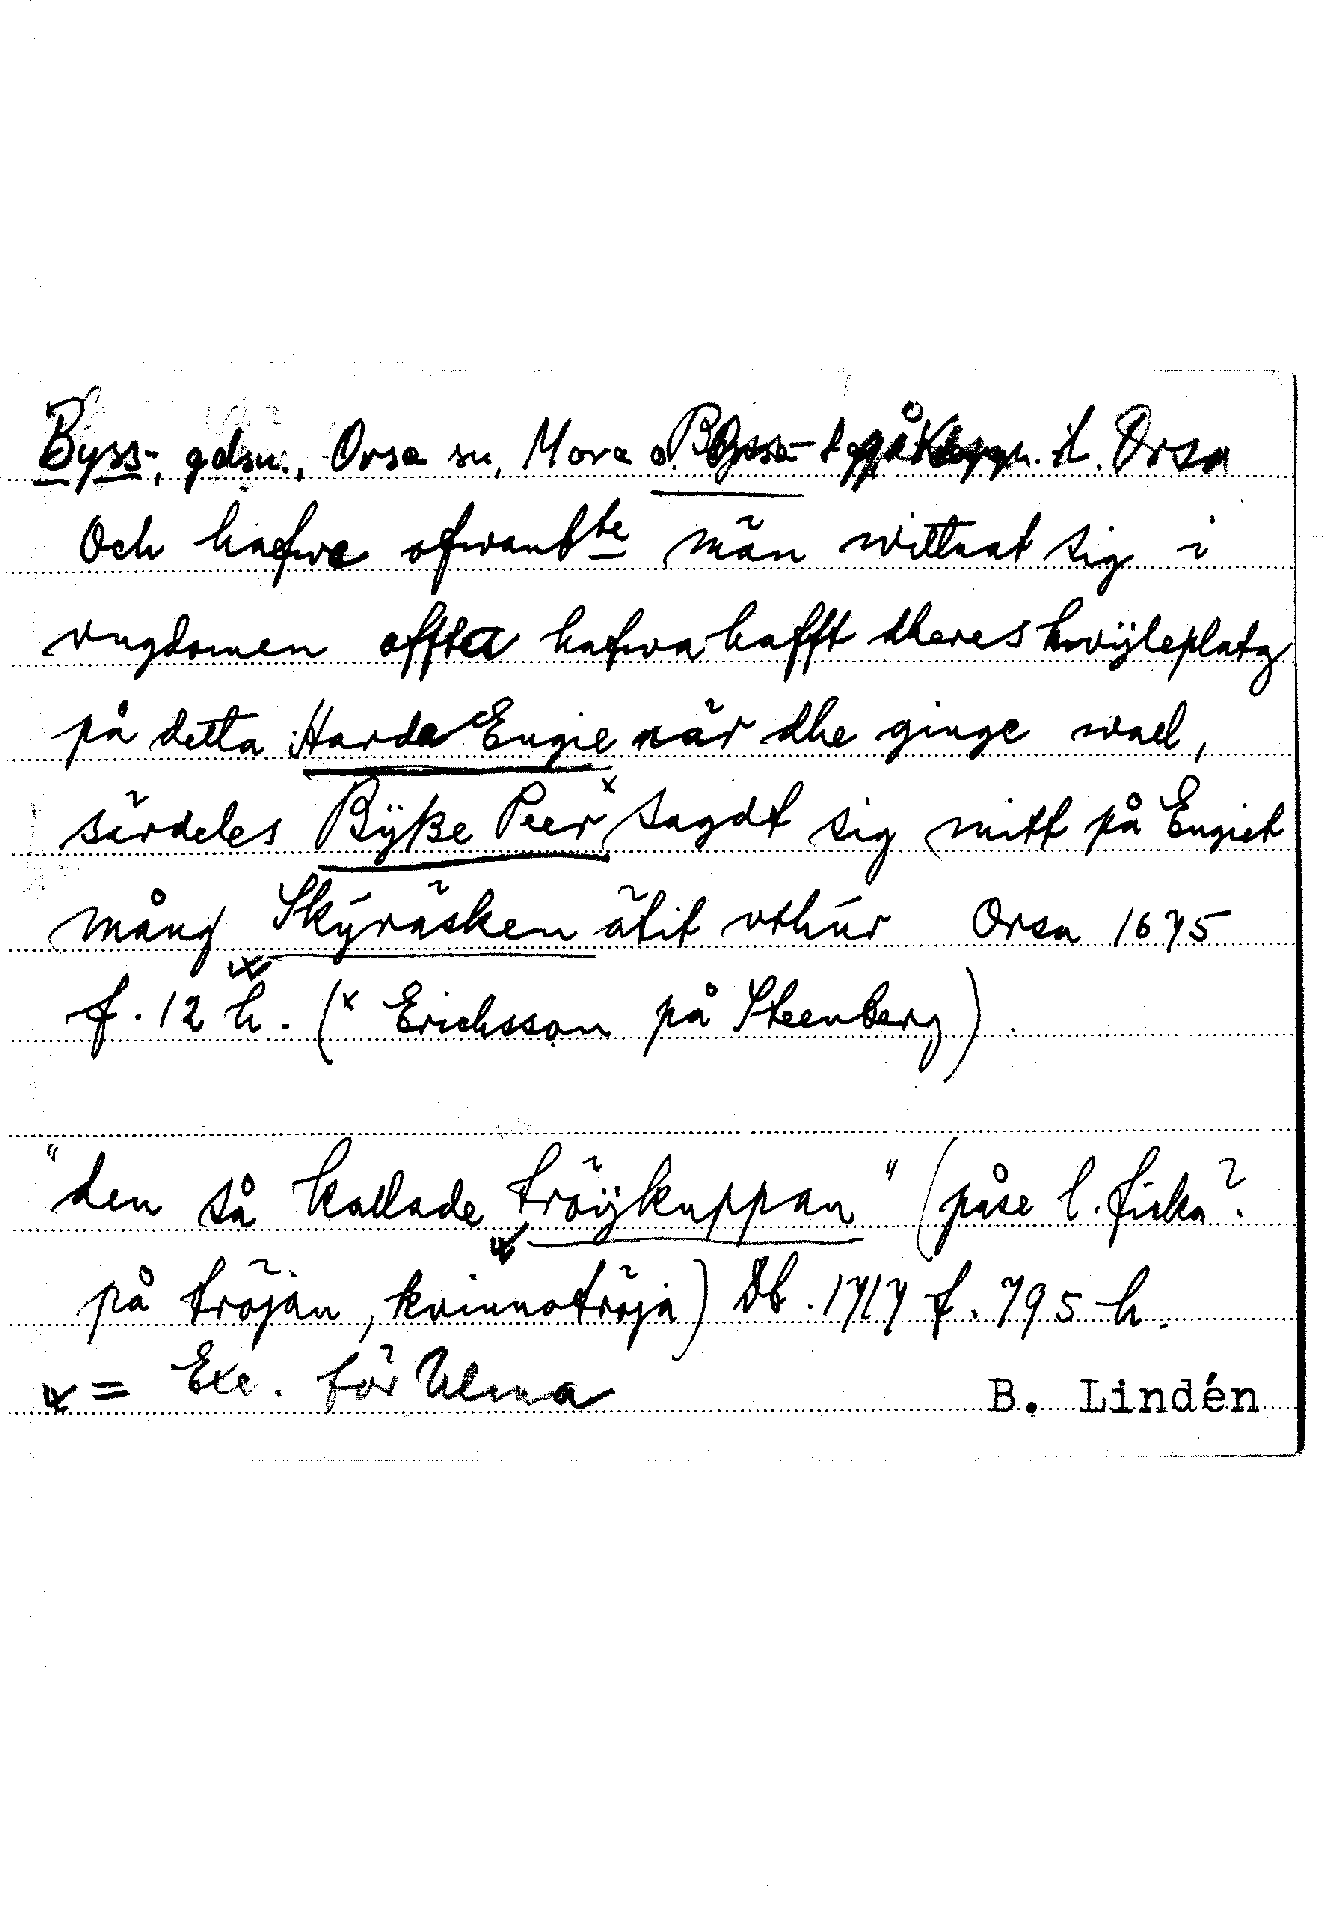 Byss-, gdsn., Orsa sn, Mora Byss- i. Orsa
Och hafwe ofwanbte män wittnat sig i
vngdomen offta hafwa hafft dheres hwÿleplatz
på detta Harda Engie när dhe ginge wael,
särdeles Bÿße Peer x sagdt sig mitt på Engiet
mång Skÿräsken ätit vthúr Orsa 1675
f. 12 h. (x Erichsson på Steenberg).
"den så kallade tröÿkuppan" (påse l. ficka?
på tröjan, kvinnotröja) Db. 1717 f. 795 h.
= Exc. för Ulma B. Lindén